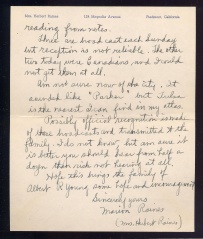 Mrs. Herbert Raines
Piedmont, California
reading from notes.
These are broadcast each Sunday
but reception is not reliable. The other
two today were Canadians, and I could
not get them at all.
Am not sure now of the city, it
sounded like "Parker" but
is the nearest I can find in my atlas.
Possibly official recognition is made
of these broadcasts and transmitted to the
family. I do not know, but am sure it
is better you should hear from half a
dozen than risk not hearing at all.
Hope this brings the family of
Albert R Young some hope and
Sincerely yours
Marion Raines
(Mrs. Herbert Raines)